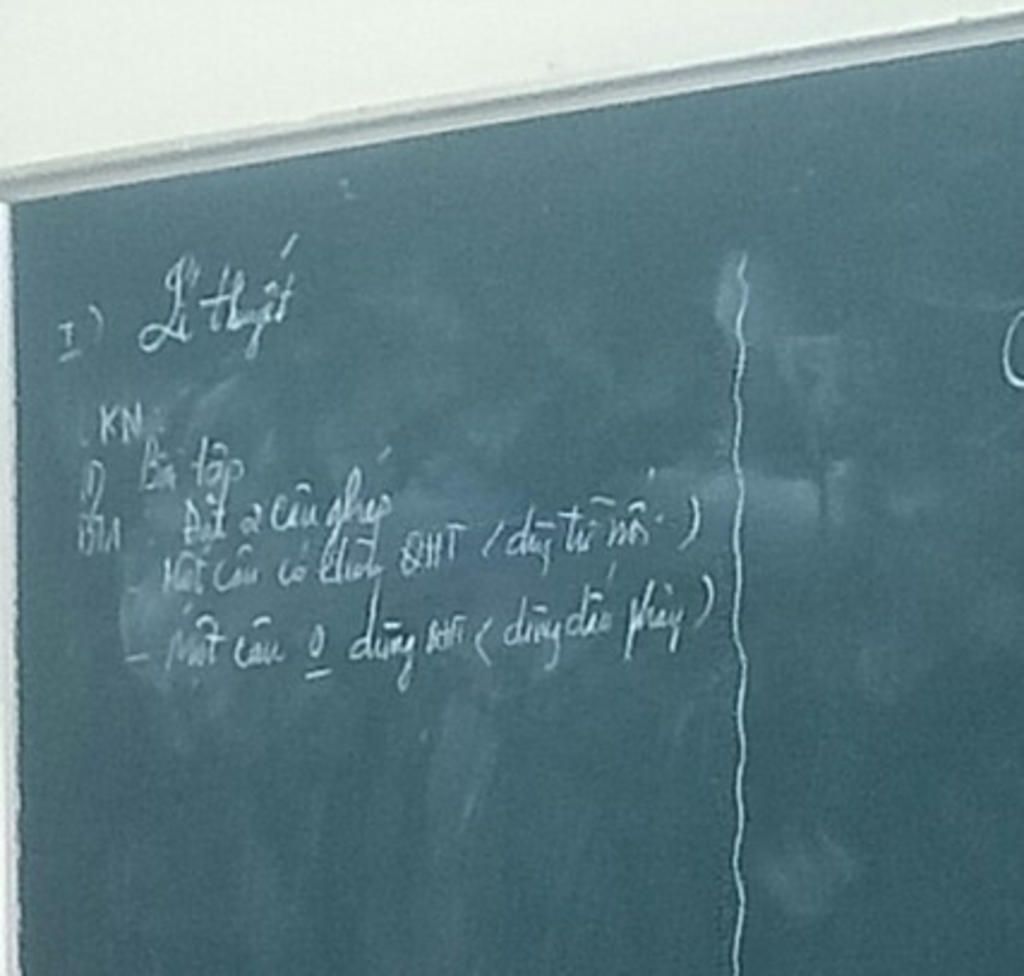 I) Lí thuyết
KN:
Bài tập
BT1 Đặt 2 câu ghép
- Một câu có dùng QHT (dùng từ nối)
- Một câu 0 dùng QHT (dùng dấu phẩy)